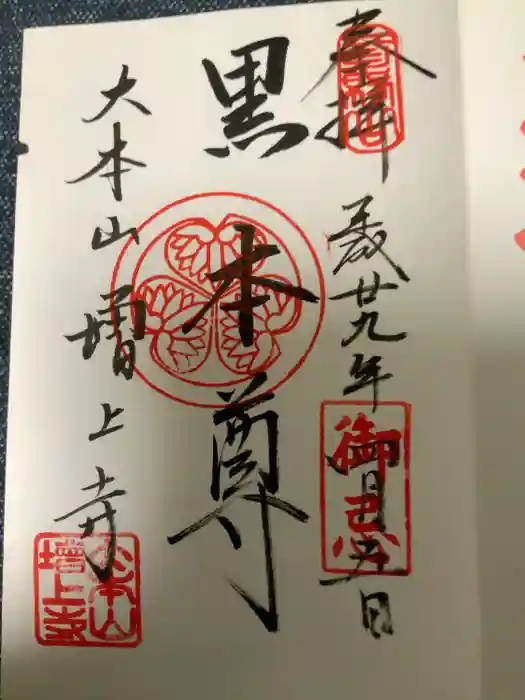 奉拝
平成廿九年月五日
御忌
黒本尊
大本山増上寺
大本山
増上寺